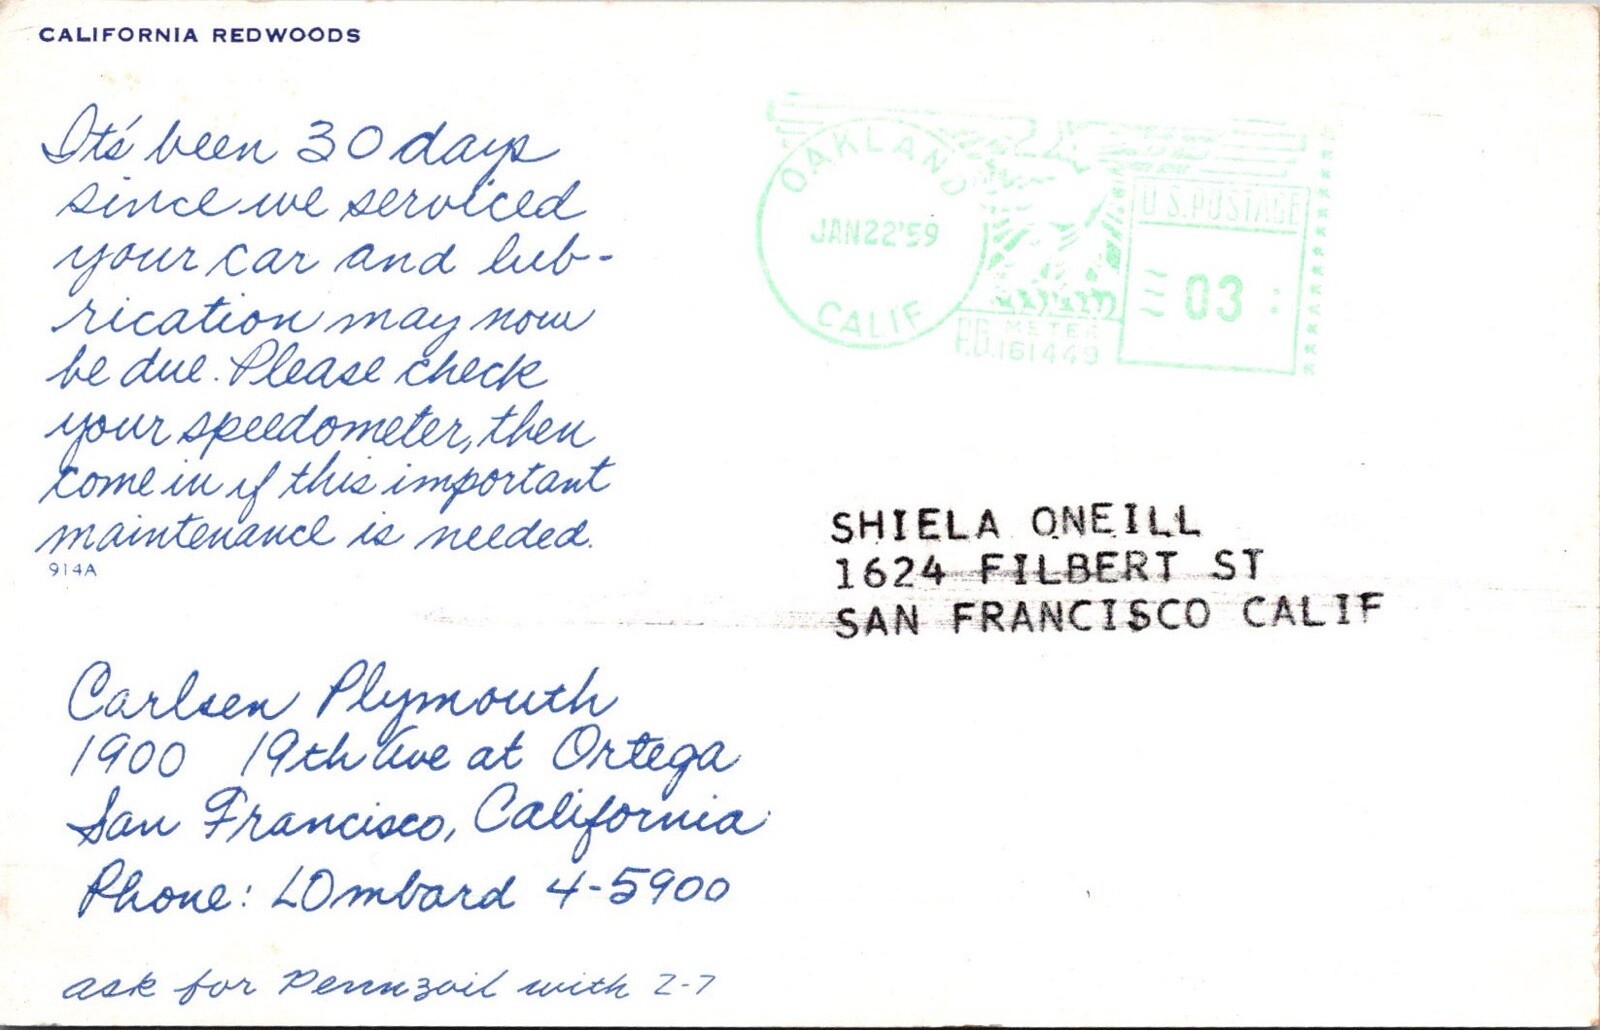 CALIFORNIA REDWOODS
It's been 30 days
since we serviced
your car and lub-
rication may now
be due. Please check
your speedometer, then
come in if this important
maintenance is needed.
914A
OAKLAND
JAN 22 '59
CALIF
P.B. METER
161449
U.S. POSTAGE
03
SHIELA ONEILL
1624 FILBERT ST
SAN FRANCISCO CALIF
Carlsen Plymouth
1900 19th Ave at Ortega
San Francisco, California
Phone: LOmbard 4-5900
ask for Pennzoil with Z-7